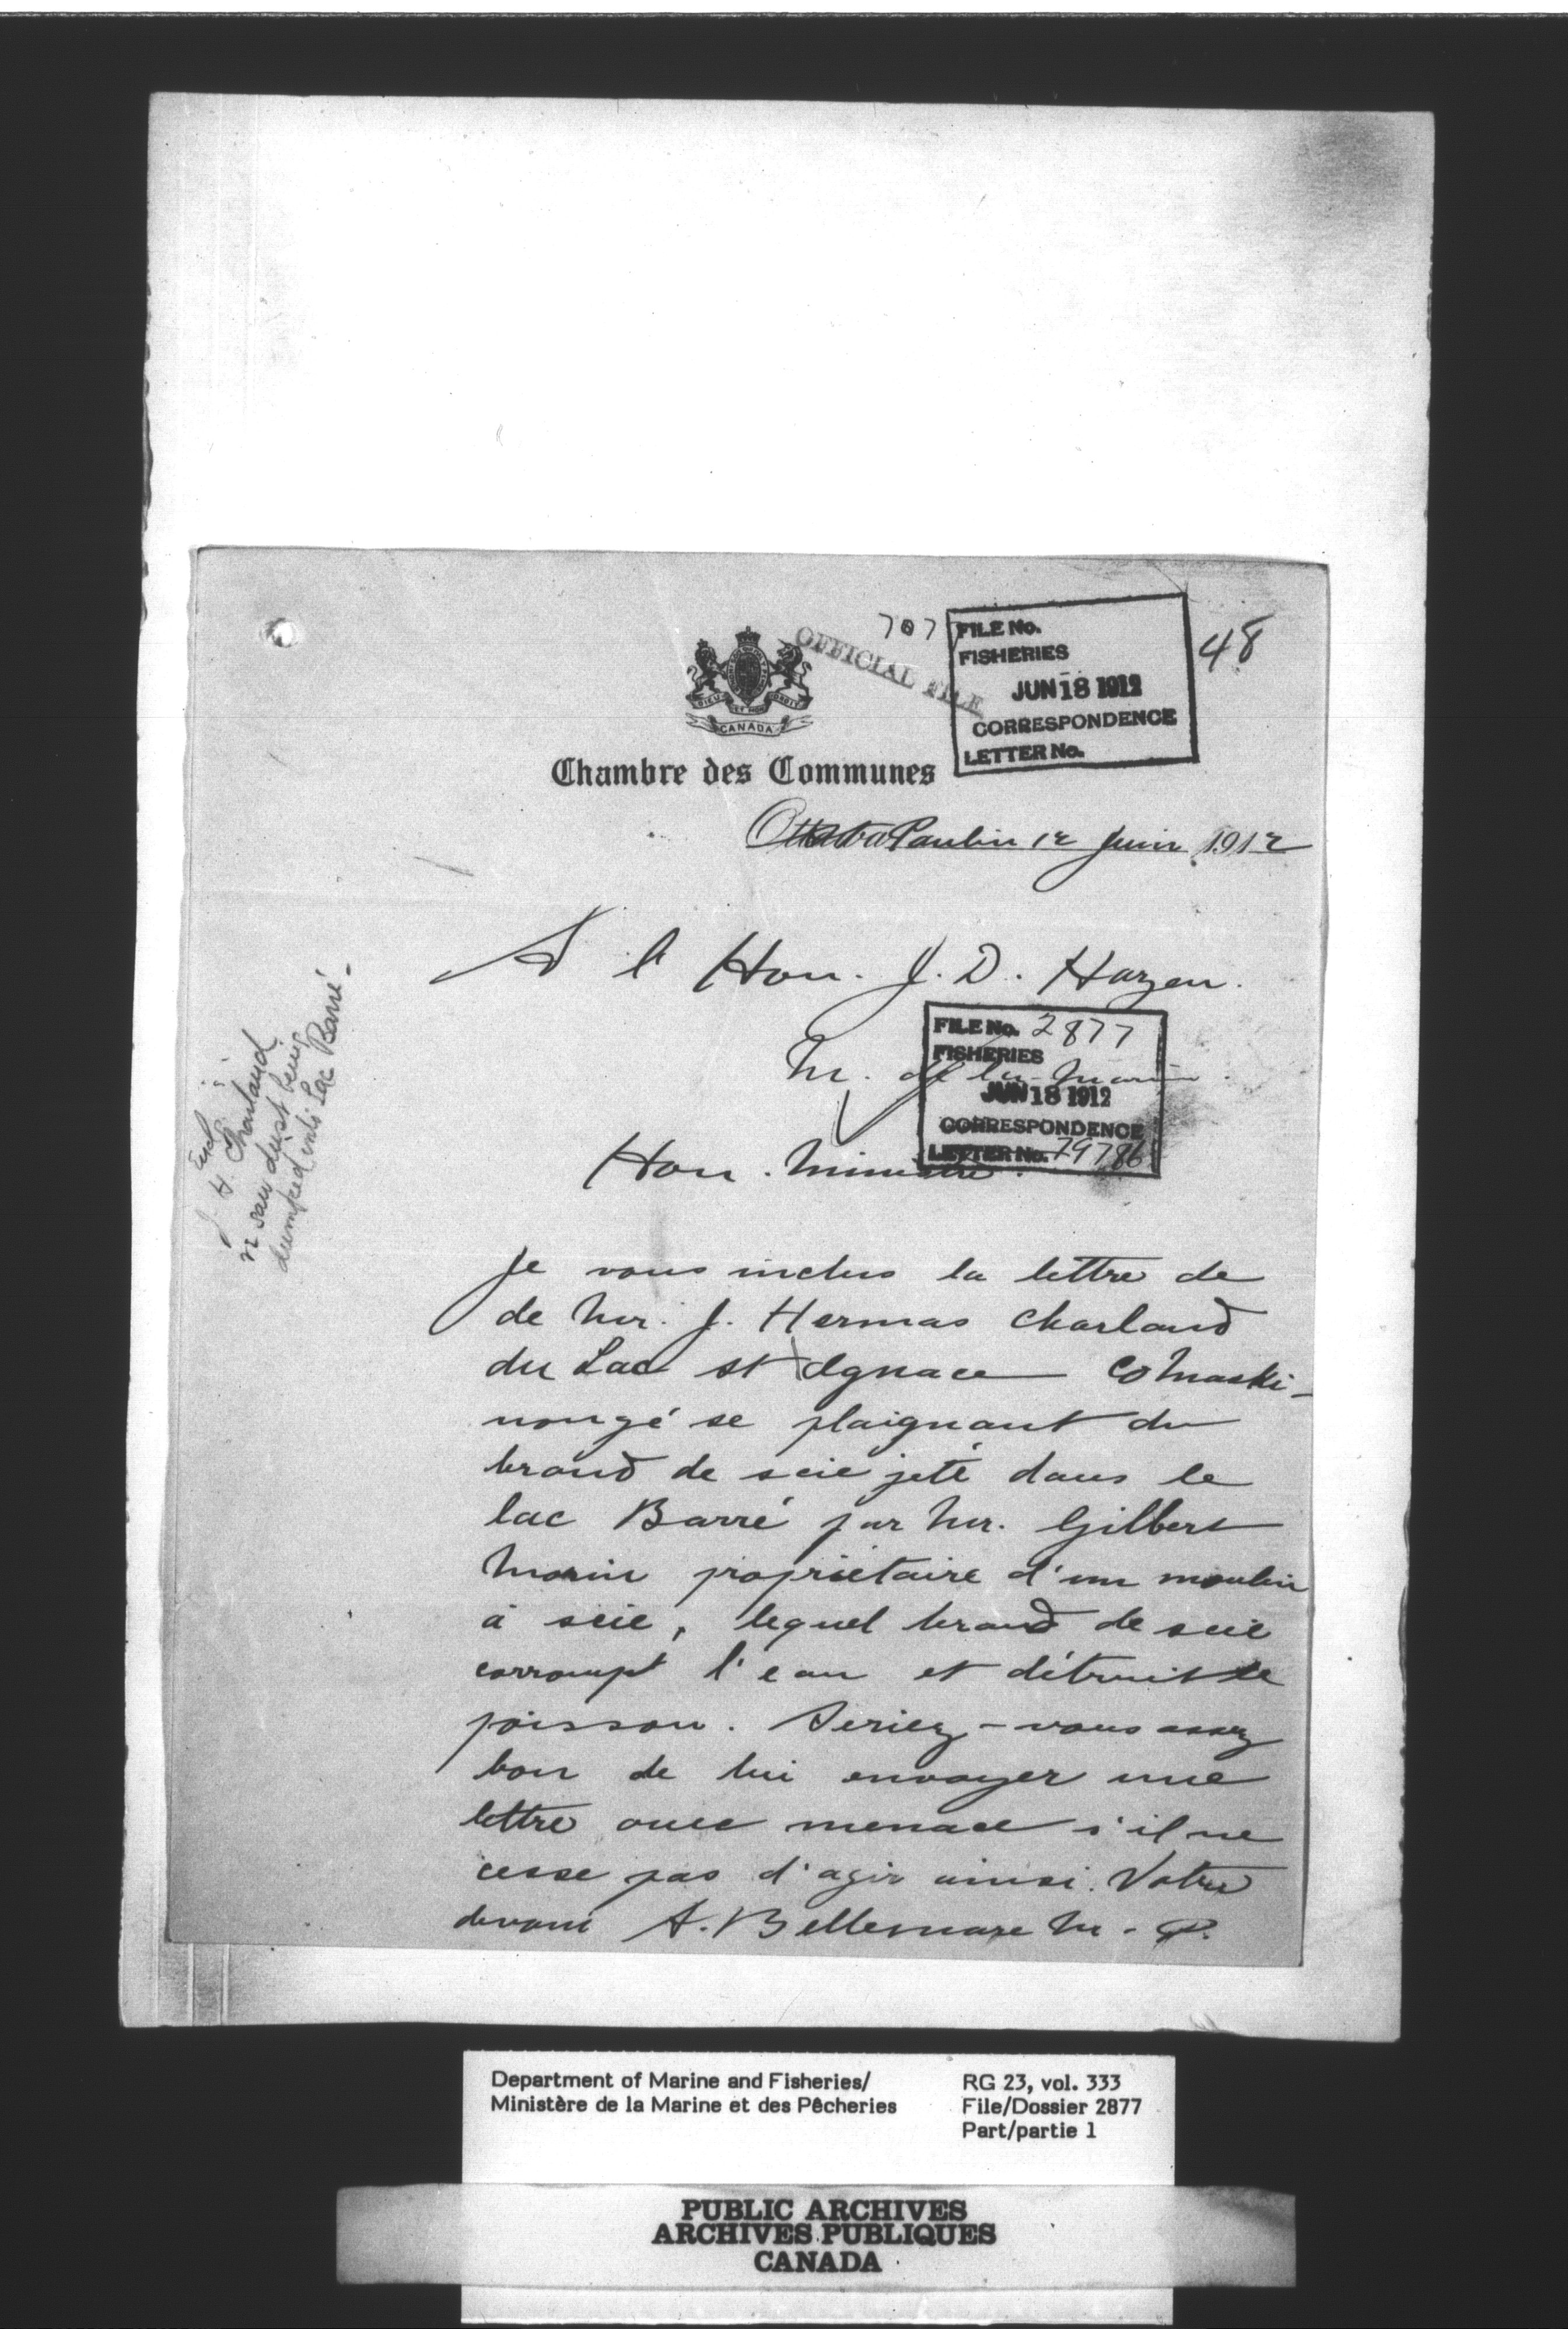 707
OFFICIAL FILE
FILE No.
FISHERIES
JUN 18 1912
CORRESPONDENCE
LETTER No.
48
DIEU ET MON DROIT
CANADA
Chambre des Communes
Ottawa Paulin 12 Juin 1912
A l Hon. J. D. Hazen.
M. de la Marine.
FILE No. 2877
FISHERIES
JUN 18 1912
CORRESPONDENCE
LETTER No. 79786
Hon. Ministre.
Encl
J. H. Charland
re saw dust being
dumped into Lac Barré-
Je vous inclus la lettre de
de Mr. J. Hermas Charland
du Lac st Ignace Co Maski-
nongé se plaignant du
brand de scie jeté dans le
lac Barré par Mr. Gilbert
Morin propriétaire d'un moulin
à scie, lequel brand de scie
corrompt l'eau et détruit le
poisson. Seriez-vous assez
bon de lui envoyer une
lettre avec menace s'il ne
cesse pas d'agir ainsi. Votre
devoué A. Bellemare M-P.
Department of Marine and Fisheries/
Ministère de la Marine et des Pêcheries
RG 23, vol. 333
File/Dossier 2877
Part/partie 1
PUBLIC ARCHIVES
ARCHIVES PUBLIQUES
CANADA